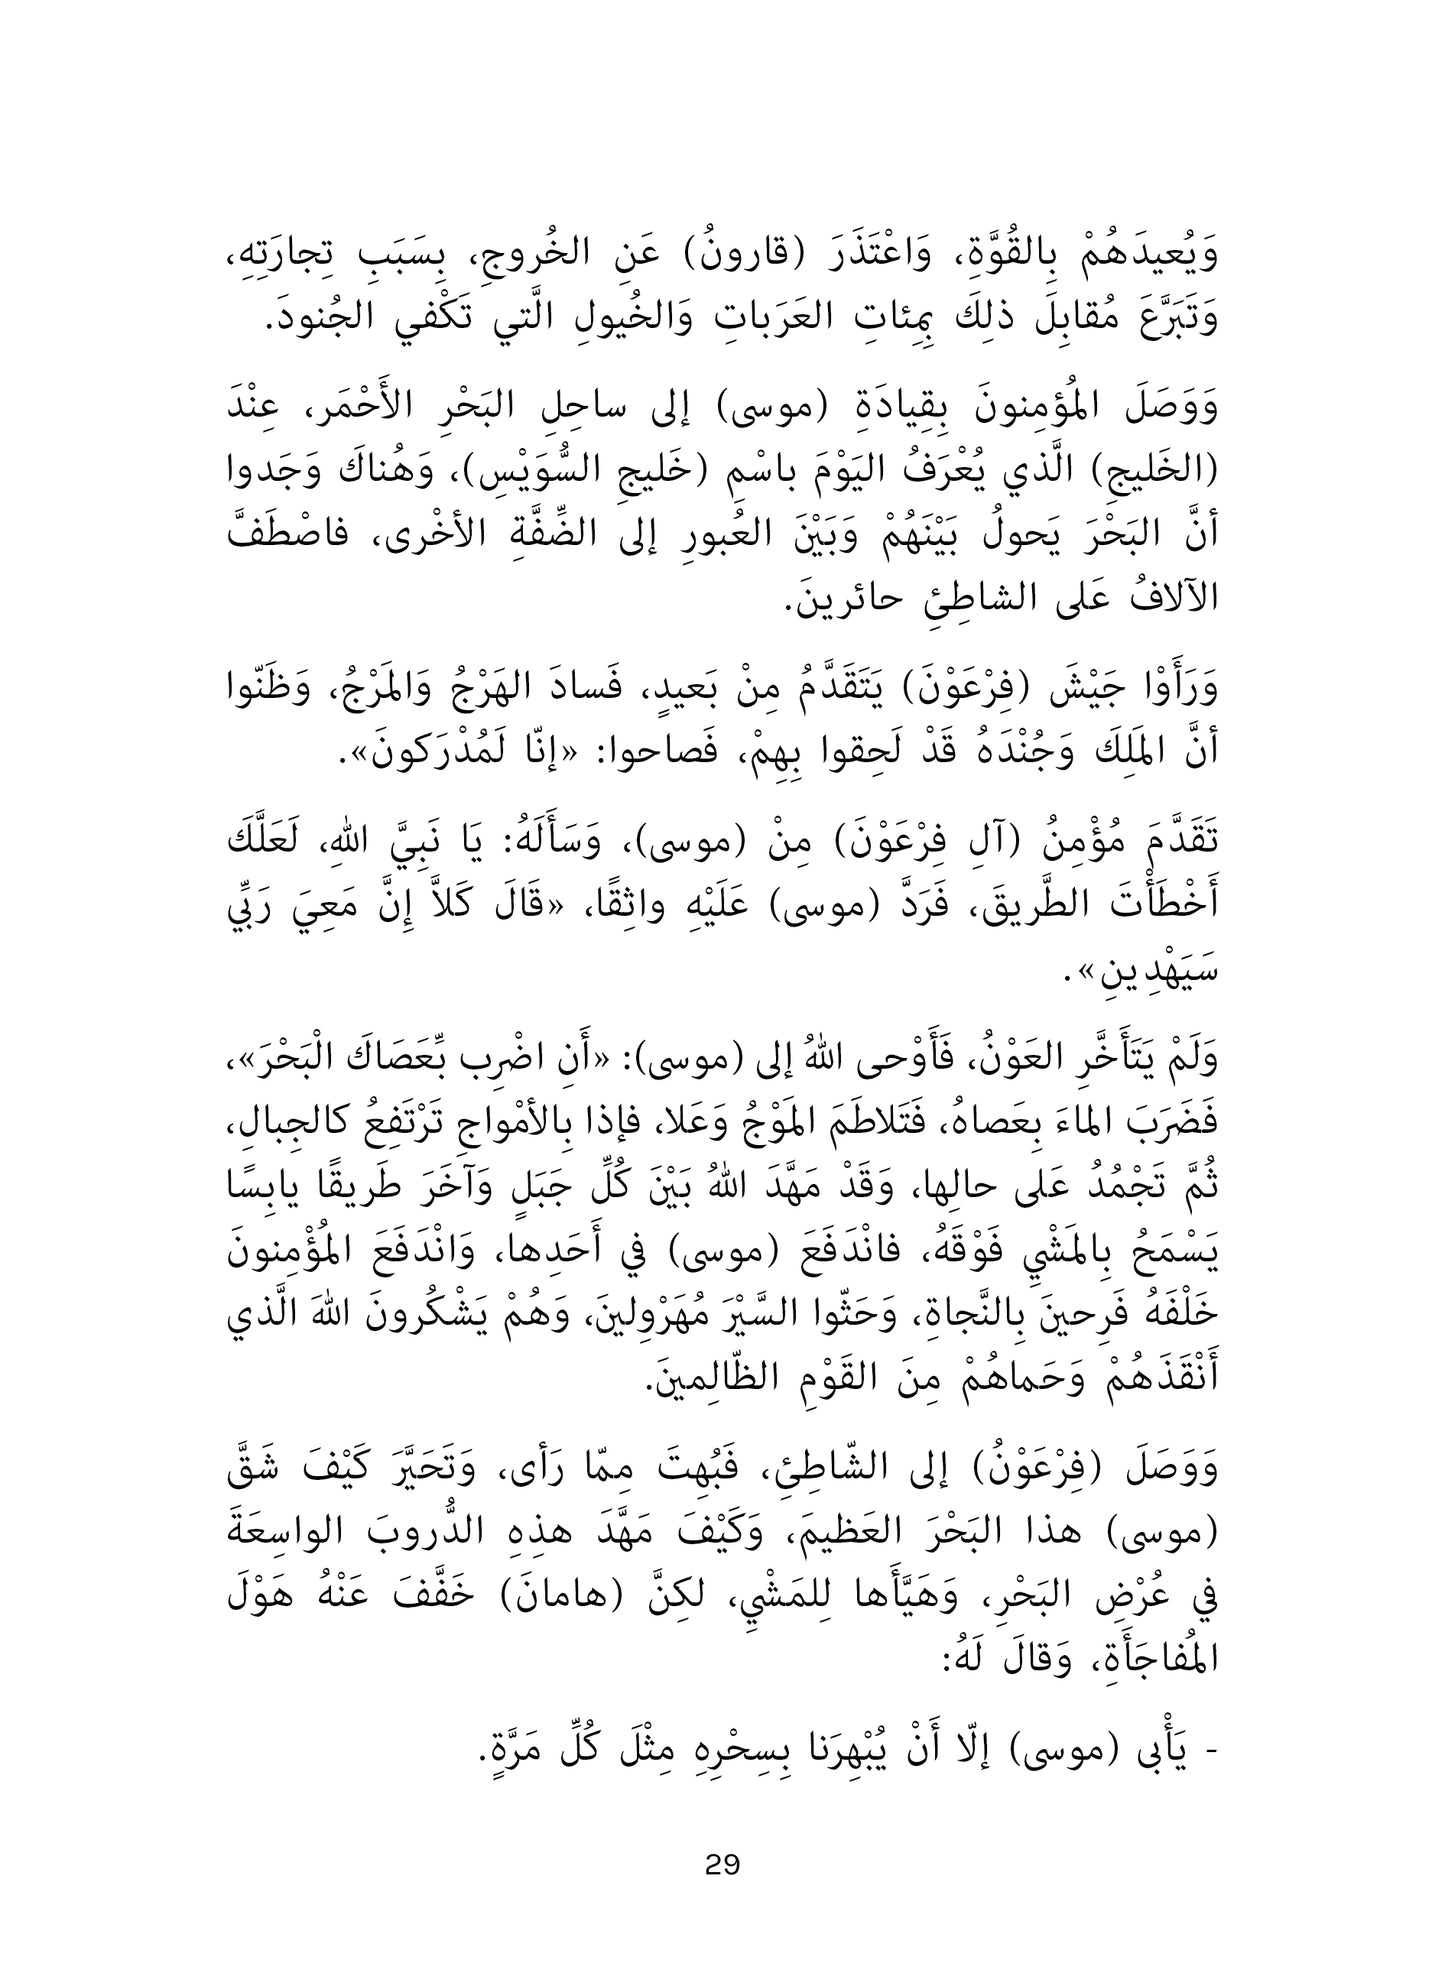 وَيُعيدَهُمْ بِالقُوَّةِ، وَاعْتَذَرَ (قارونُ) عَنِ الخُروجِ، بِسَبَبِ تِجارَتِهِ،
وَتَبَرَّعَ مُقابِلَ ذلِكَ بِمِئاتِ العَرَباتِ وَالخُيولِ الَّتي تَكْفي الجُنودَ.
وَوَصَلَ المُؤمِنونَ بِقِيادَةِ (موسى) إلى ساحِلِ البَحْرِ الأَحْمَر، عِنْدَ
(الخَليجِ) الَّذي يُعْرَفُ اليَوْمَ باسْمِ (خَليجِ السُّوَيْسِ)، وَهُناكَ وَجَدوا
أنَّ البَحْرَ يَحولُ بَيْنَهُمْ وَبَيْنَ العُبورِ إلى الضِّفَّةِ الأخْرى، فاصْطَفَّ
الآلافُ عَلى الشاطِئِ حائرينَ.
وَرَأَوْا جَيْشَ (فِرْعَوْنَ) يَتَقَدَّمُ مِنْ بَعيدٍ، فَسادَ الهَرْجُ وَالمَرْجُ، وَظَنّوا
أنَّ المَلِكَ وَجُنْدَهُ قَدْ لَحِقوا بِهِمْ، فَصاحوا: «إنّا لَمُدْرَكونَ».
تَقَدَّمَ مُؤْمِنُ (آلِ فِرْعَوْنَ) مِنْ (موسى)، وَسَأَلَهُ: يَا نَبِيَّ اللهِ، لَعَلَّكَ
أَخْطَأْتَ الطَّريقَ، فَرَدَّ (موسى) عَلَيْهِ واثِقًا، «قَالَ كَلاَّ إِنَّ مَعِيَ رَبِّي
سَيَهْدِينِ».
وَلَمْ يَتَأَخَّرِ العَوْنُ، فَأَوْحى اللهُ إلى (موسى): «أَنِ اضْرِب بِّعَصَاكَ الْبَحْرَ»،
فَضَرَبَ الماءَ بِعَصاهُ، فَتَلاطَمَ المَوْجُ وَعَلا، فإذا بِالأمْواجِ تَرْتَفِعُ كالجِبالِ،
ثُمَّ تَجْمُدُ عَلى حالِها، وَقَدْ مَهَّدَ اللهُ بَيْنَ كُلِّ جَبَلٍ وَآخَرَ طَريقًا يابِسًا
يَسْمَحُ بِالمَشْيِ فَوْقَهُ، فانْدَفَعَ (موسى) في أَحَدِها، وَانْدَفَعَ المُؤْمِنونَ
خَلْفَهُ فَرِحينَ بِالنَّجاةِ، وَحَثّوا السَّيْرَ مُهَرْوِلينَ، وَهُمْ يَشْكُرونَ اللهَ الَّذي
أَنْقَذَهُمْ وَحَماهُمْ مِنَ القَوْمِ الظّالِمينَ.
وَوَصَلَ (فِرْعَوْنُ) إلى الشّاطِئِ، فَبُهِتَ مِمّا رَأى، وَتَحَيَّرَ كَيْفَ شَقَّ
(موسى) هذا البَحْرَ العَظيمَ، وَكَيْفَ مَهَّدَ هذِهِ الدُّروبَ الواسِعَةَ
في عُرْضِ البَحْرِ، وَهَيَّأَها لِلمَشْيِ، لكِنَّ (هامانَ) خَفَّفَ عَنْهُ هَوْلَ
المُفاجَأَةِ، وَقالَ لَهُ:
- يَأْبى (موسى) إلّا أَنْ يُبْهِرَنا بِسِحْرِهِ مِثْلَ كُلِّ مَرَّةٍ.
29